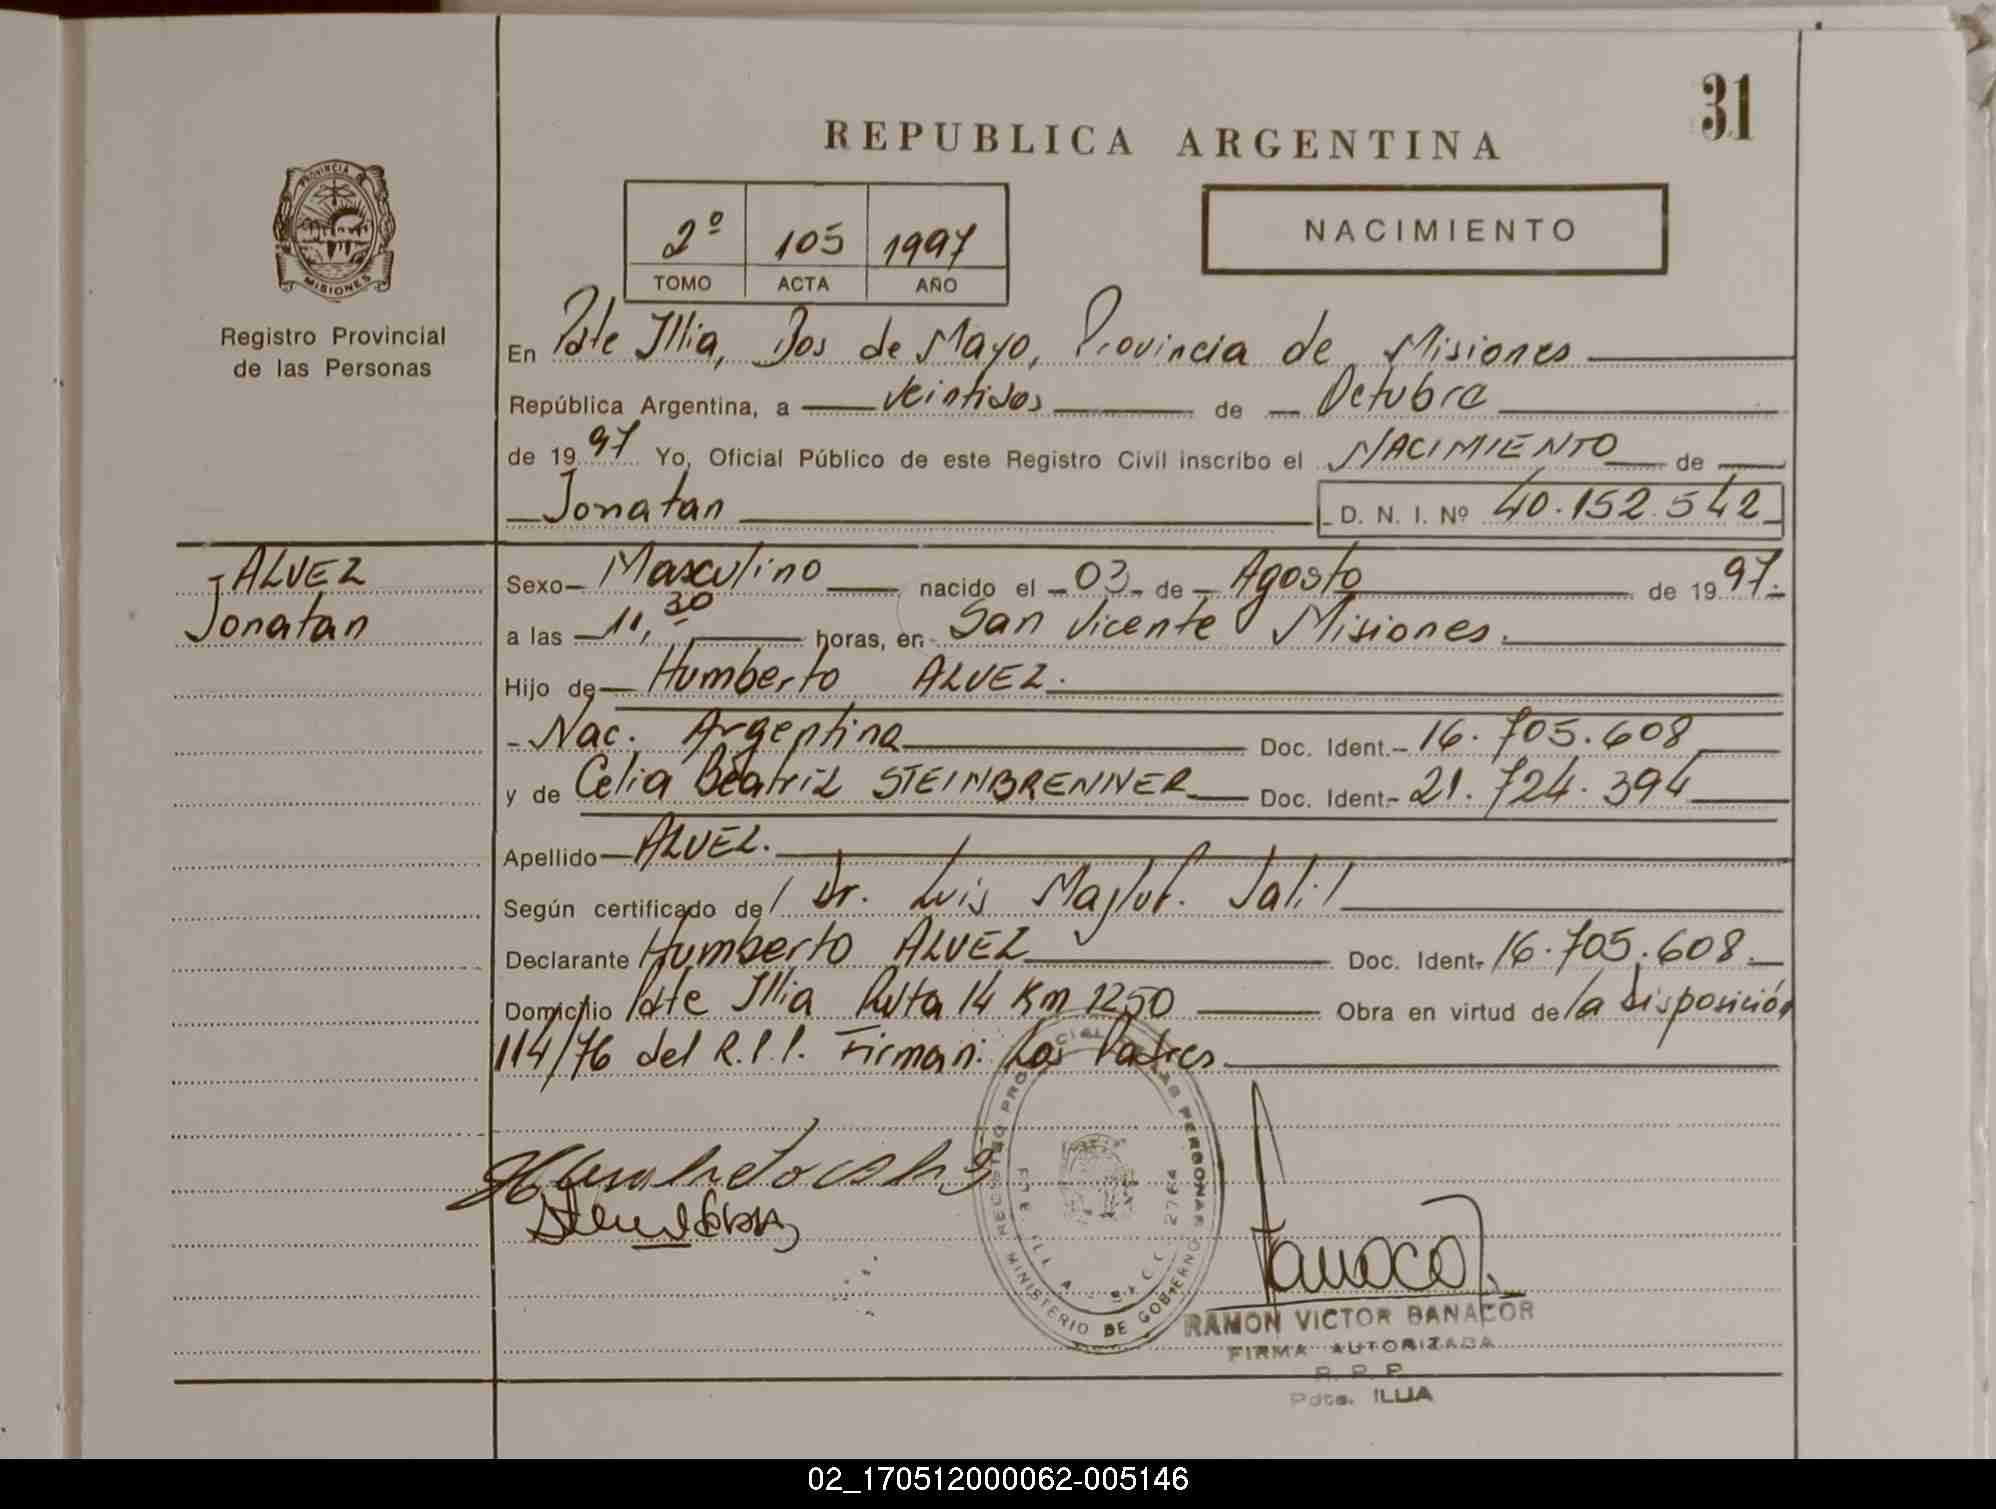 31
REPUBLICA ARGENTINA
PROVINCIA DE MISIONES
Registro Provincial
de las Personas
2º 105 1997
TOMO ACTA AÑO
NACIMIENTO
En Pdte Illia, Dos de Mayo, Provincia de Misiones
República Argentina, a veintidos de Octubre
de 1997 Yo, Oficial Público de este Registro Civil inscribo el NACIMIENTO de
Jonatan D. N. I. Nº 40.152.542
ALVEZ
Jonatan
Sexo Masculino nacido el 03 de Agosto de 1997.
a las 11,30 horas, en San Vicente Misiones.
Hijo de Humberto ALVEZ.
Nac. Argentina Doc. Ident. 16.705.608
y de Celia Beatriz STEINBRENNER Doc. Ident. 21.724.394
Apellido ALVEZ.
Según certificado de Dr. Luis Majluf. Jalil
Declarante Humberto ALVEZ Doc. Ident. 16.705.608.
Domicilio Pdte Illia Ruta 14 Km 1250 Obra en virtud de la disposición
114/76 del R.P.P. Firman: Los Padres
REGISTRO PROVINCIAL DE LAS PERSONAS
MINISTERIO DE GOBIERNO
RAMON VICTOR BANACOR
FIRMA AUTORIZADA
R. P. P.
Pdte. ILLIA
02_170512000062-005146